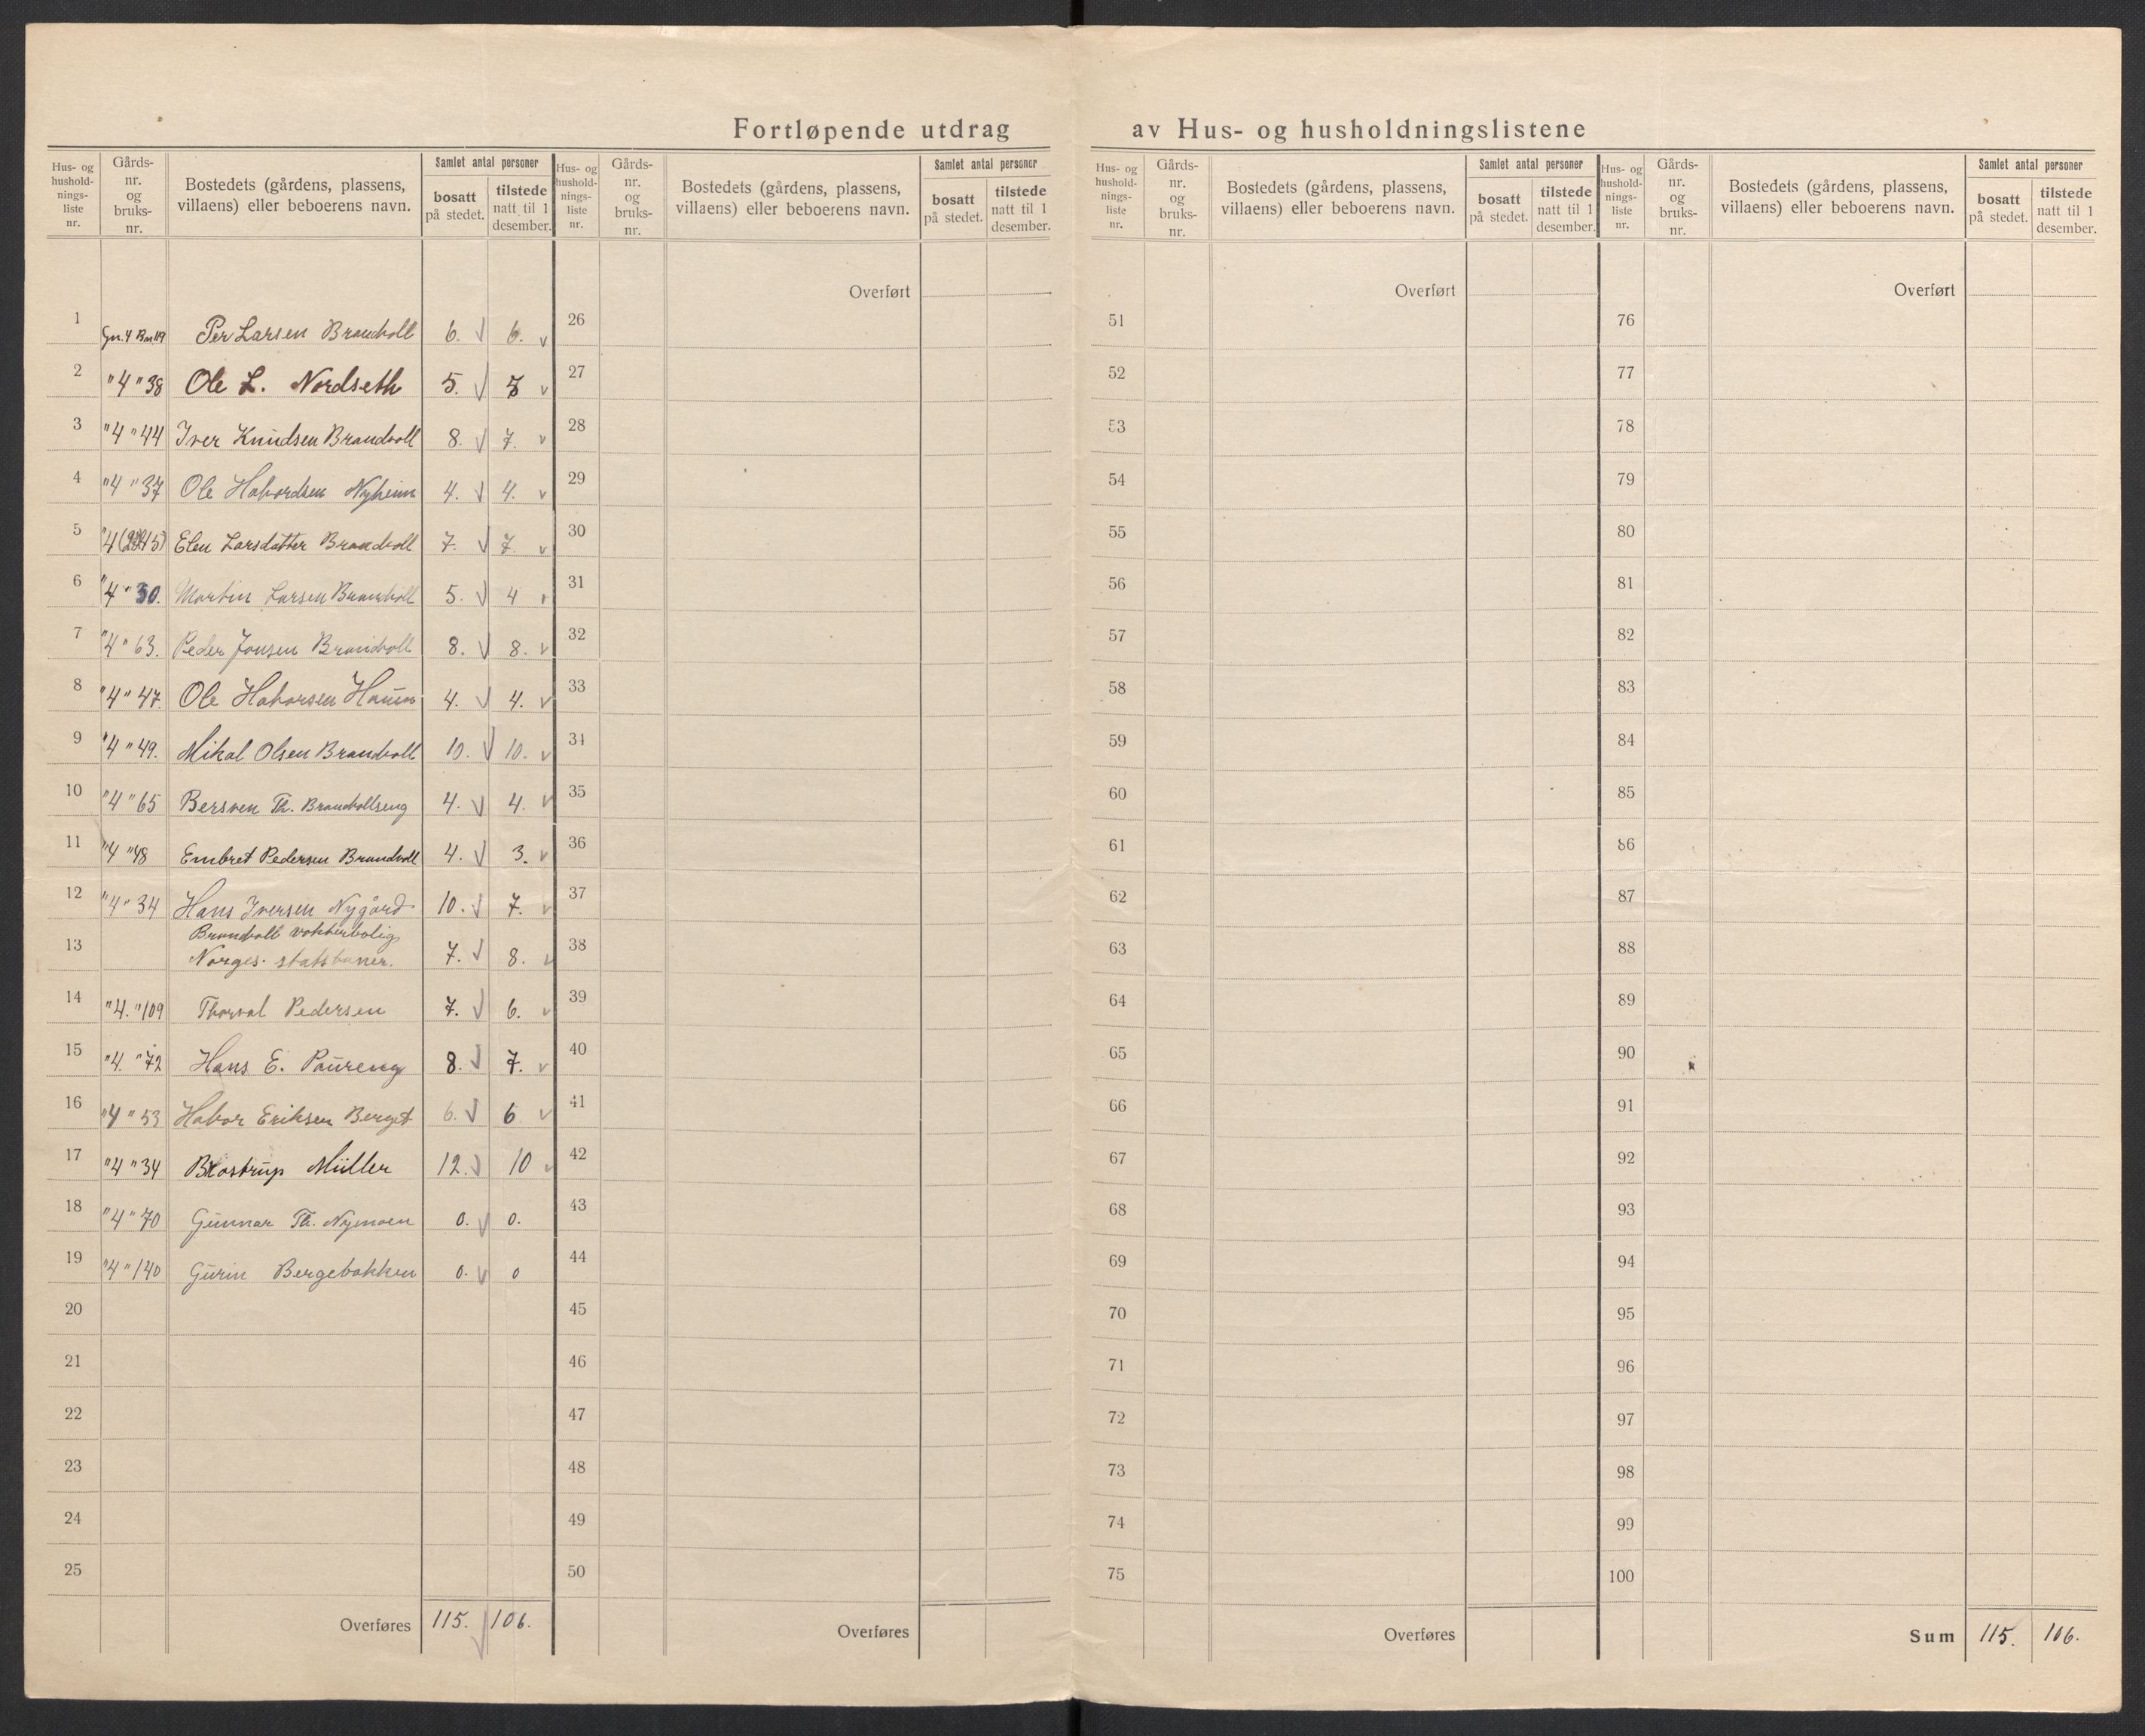 Fortløpende utdrag av Hus- og husholdningslistene
Hus- og hushold-nings-liste nr.
Gårds-nr. og bruks-nr.
Bostedets (gårdens, plassens, villaens) eller beboerens navn.
Samlet antal personer
bosatt på stedet.
tilstede natt til 1 desember.
1 Gn. 4 Bn. 119 Per Larsen Brandvoll 6. 6.
2 " 4 " 38 Ole L. Nordseth 5. 7
3 " 4 " 44 Iver Knudsen Brandvoll 8. 7.
4 " 4 " 37 Ole Havordsen Nyheim 4. 4.
5 " 4 Elen Larsdatter Brandvoll 7. 7.
6 " 4 " 30. Martin Larsen Brandvoll 5. 4
7 " 4 " 63. Peder Jonsen Brandvoll 8. 8.
8 " 4 " 47. Ole Havorsen 4. 4.
9 " 4 " 49. Mikal Olsen Brandvoll 10. 10.
10 " 4 " 65 Bersven Th. Brandvollseng 4. 4.
11 " 4 " 48 Embret Pedersen Brandvoll 4. 3.
12 " 4 " 34 Hans Iversen Nygård 10. 7.
13 Brandvoll vokterbolig
Norges statsbaner. 7. 8.
14 " 4. " 109 Thorval Pedersen 7. 6.
15 " 4. " 72 Hans E. Paureng 8. 7.
16 " 4 " 53 Havor Eriksen Berget 6. 6
17 " 4 " 34 Müller 12. 10
18 " 4 " 70 Gunnar Th. Nymoen 0. 0.
19 " 4 " 140 Gurin Bergebakken 0. 0
20
21
22
23
24
25
Overføres 115. 106.
Hus- og hushold-nings-liste nr.
Gårds-nr. og bruks-nr.
Bostedets (gårdens, plassens, villaens) eller beboerens navn.
Samlet antal personer
bosatt på stedet.
tilstede natt til 1 desember.
Overført
26
27
28
29
30
31
32
33
34
35
36
37
38
39
40
41
42
43
44
45
46
47
48
49
50
Overføres
Hus- og hushold-nings-liste nr.
Gårds-nr. og bruks-nr.
Bostedets (gårdens, plassens, villaens) eller beboerens navn.
Samlet antal personer
bosatt på stedet.
tilstede natt til 1 desember.
Overført
51
52
53
54
55
56
57
58
59
60
61
62
63
64
65
66
67
68
69
70
71
72
73
74
75
Overføres
Hus- og hushold-nings-liste nr.
Gårds-nr. og bruks-nr.
Bostedets (gårdens, plassens, villaens) eller beboerens navn.
Samlet antal personer
bosatt på stedet.
tilstede natt til 1 desember.
Overført
76
77
78
79
80
81
82
83
84
85
86
87
88
89
90
91
92
93
94
95
96
97
98
99
100
Sum 115. 106.